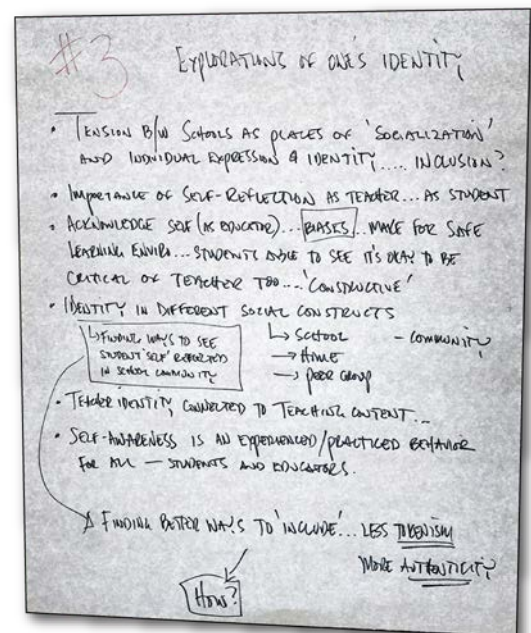 #3
EXPLORATIONS OF ONE'S IDENTITY
• TENSION B/W SCHOOLS AS PLACES OF 'SOCIALIZATION'
AND INDIVIDUAL EXPRESSION & IDENTITY.... INCLUSION?
• IMPORTANCE OF SELF-REFLECTION AS TEACHER... AS STUDENT
• ACKNOWLEDGE SELF (AS EDUCATOR)... BIASES... MAKE FOR SAFE
LEARNING ENVIRO... STUDENTS ABLE TO SEE IT'S OKAY TO BE
CRITICAL OF TEACHER TOO... 'CONSTRUCTIVE'
• IDENTITY IN DIFFERENT SOCIAL CONSTRUCTS
↳ FINDING WAYS TO SEE
STUDENT 'SELF' REFLECTED
IN SCHOOL COMMUNITY
↳ SCHOOL – COMMUNITY
→ HOME
→ PEER GROUP
• TEACHER IDENTITY CONNECTED TO TEACHING CONTENT...
• SELF-AWARENESS IS AN EXPERIENCED/PRACTICED BEHAVIOR
FOR ALL — STUDENTS AND EDUCATORS.
FINDING BETTER WAYS TO 'INCLUDE'... LESS TOKENISM
MORE AUTHENTICITY
HOW?